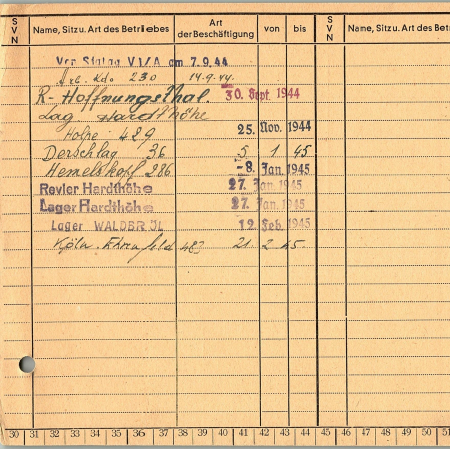 S V N Name, Sitz u. Art des Betriebes Art der Beschäftigung von bis S V N Name, Sitz u. Art des Bet
Von Stalag VI/A am 7.9.44
Arb. Kdo 230 14.9.44.
R- Hoffnungsthal. 30. Sept. 1944
Lag Hardthöhe
Holpe 429 25. Nov. 1944
Derschlag 36 5 1 45
Hemelskopf 286 -8. Jan. 1945
Revier Hardthöhe 27. Jan. 1945
Lager Hardthöhe 27. Jan. 1945
Lager WALDBRÖL 12. Feb. 1945
Köln. Ehrenfeld 483 21 2 45
30 31 32 33 34 35 36 37 38 39 40 41 42 43 44 45 46 47 48 49 50 51